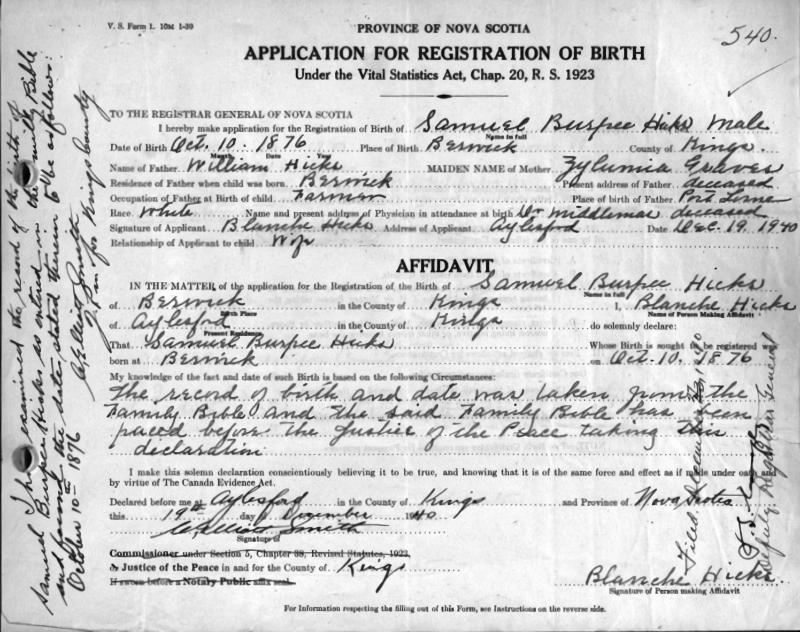 V. S. Form 1. 10M 1-39
PROVINCE OF NOVA SCOTIA
540.
APPLICATION FOR REGISTRATION OF BIRTH
Under the Vital Statistics Act, Chap. 20, R. S. 1923
TO THE REGISTRAR GENERAL OF NOVA SCOTIA
I hereby make application for the Registration of Birth of Samuel Burpee Hicks Male
Name in full
Date of Birth Oct. 10. 1876 Place of Birth Berwick County of Kings.
Month Date Yr.
Name of Father William Hicks MAIDEN NAME of Mother Zylumia Graves
Residence of Father when child was born Berwick Present address of Father deceased
Occupation of Father at Birth of child Farmer Place of birth of Father Port Lorne
Race. White Name and present address of Physician in attendance at birth Dr. Middlemas deceased
Signature of Applicant Blanche Hicks Address of Applicant Aylesford Date Dec. 19. 1940
Relationship of Applicant to child
AFFIDAVIT
IN THE MATTER of the application for the Registration of the Birth of Samuel Burpee Hicks
Name in full
of Berwick in the County of Kings I, Blanche Hicks
Birth Place Name of Person Making Affidavit
of Aylesford in the County of Kings do solemnly declare:
Present Residency
That Samuel Burpee Hicks Whose Birth is sought to be registered was
born at Berwick on Oct. 10. 1876
My knowledge of the fact and date of such Birth is based on the following Circumstances:
The record of birth and date was taken from the
Family Bible and the said Family Bible has been
placed before the Justice of the Peace taking this
declaration
I make this solemn declaration conscientiously believing it to be true, and knowing that it is of the same force and effect as if made under oath and
by virtue of The Canada Evidence Act.
Declared before me at Aylesford in the County of Kings and Province of Nova Scotia
this 19th day December 1940
C. Elliott Smith
Signature of
Commissioner under Section 5, Chapter 38, Revised Statutes, 1923,
Justice of the Peace in and for the County of Kings
If sworn before a Notary Public affix seal.
Blanche Hicks
Signature of Person making Affidavit
For Information respecting the filling out of this Form, see Instructions on the reverse side.
I have examined the record of the birth of
Samuel Burpee Hicks as entered in the family Bible
and found the date stated therein to be as follows:
October 10th 1876
C. Elliott Smith
J.P. in for Kings County
Filed December 1940
Deputy Registrar General